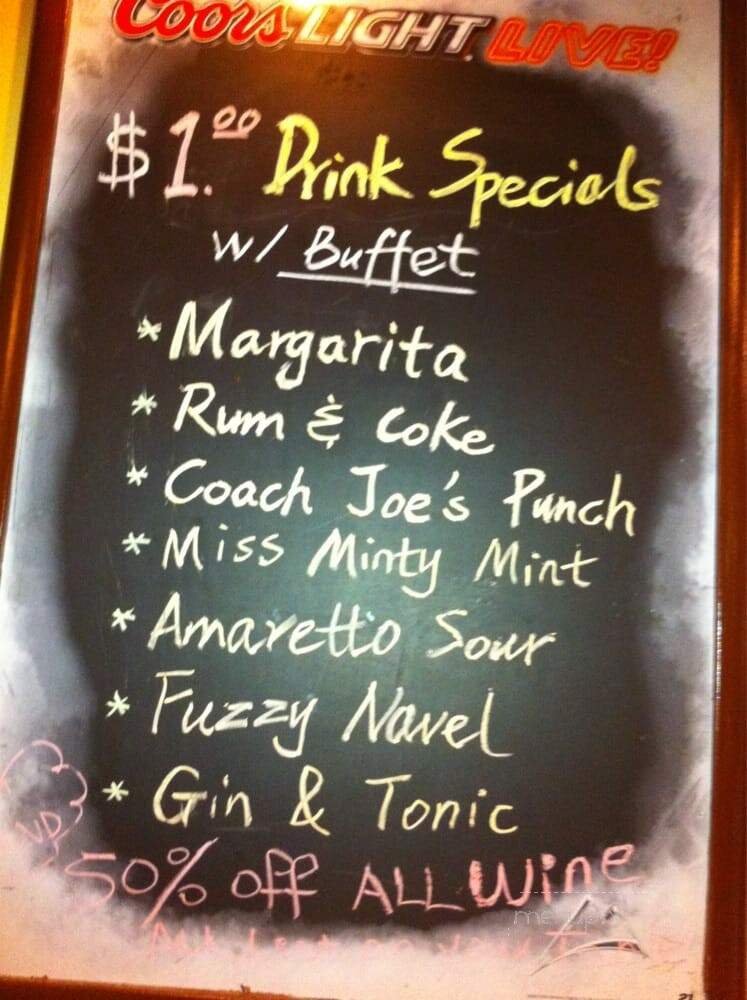 Coors LIGHT LIVE!
$1.00 Drink Specials
w/ Buffet
* Margarita
* Rum & Coke
* Coach Joe's Punch
* Miss Minty Mint
* Amaretto Sour
* Fuzzy Navel
* Gin & Tonic
UP
50% off ALL Wine
me up